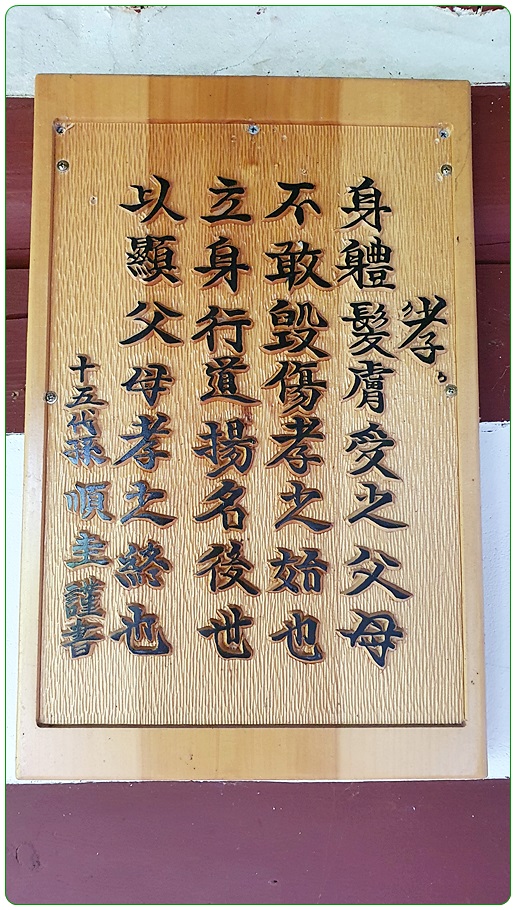 孝
身軆髮膚受之父母
不敢毁傷孝之始也
立身行道揚名後世
以顯父母孝之終也
十五代孫順圭謹書